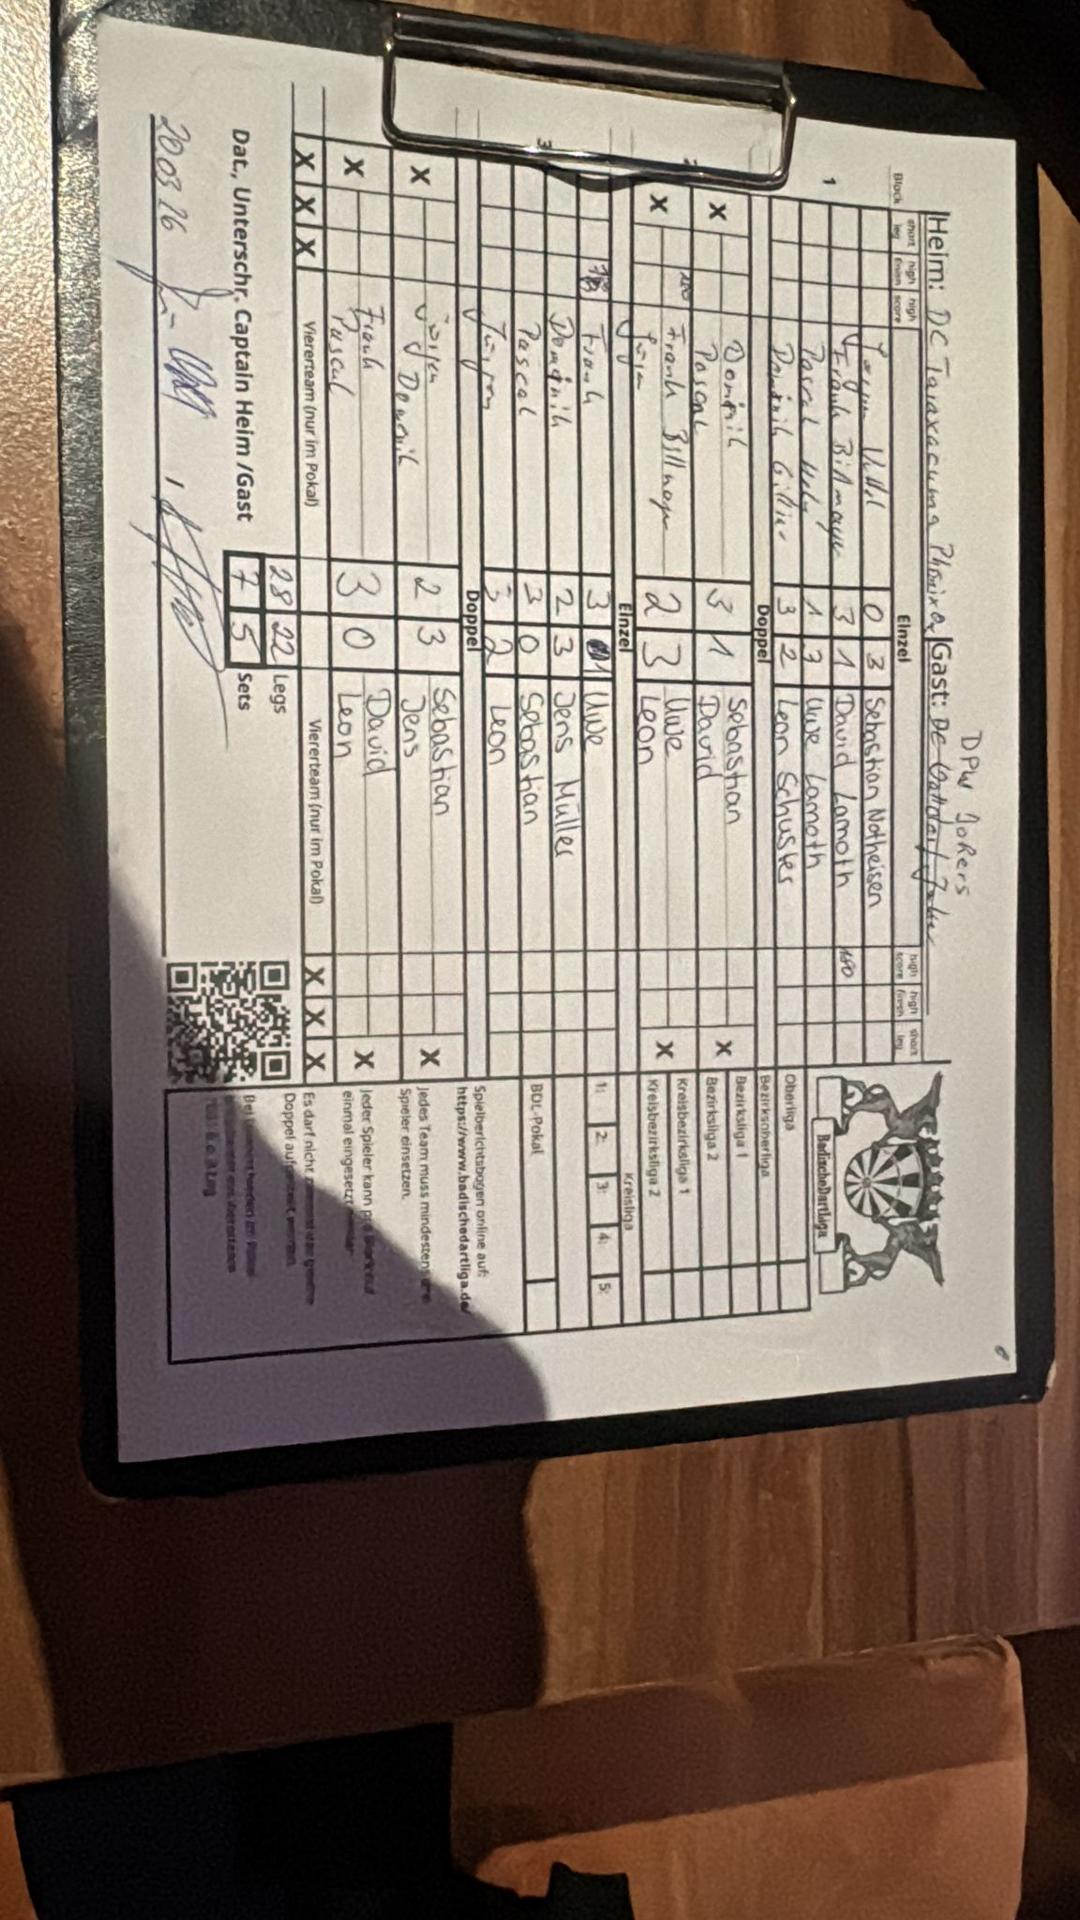 DPW JoKers
Heim: DC Taraxacums Phönix Gast: DC
Block short leg high finish high score Einzel high score high finish short leg
1
Jürgen 0 3 Sebastian Notheisen
Frank Billmayer 3 1 David Lamoth 180
Pascal 1 3 Uwe Lamoth
Dominik 3 2 Leon Schuster
Doppel
2
X Dominik 3 1 Sebastian X
Pascal David
X 180 Frank Billmayer 2 3 Uwe X
Jürgen Leon
Einzel
3
Frank 3 1 Uwe
Dominik 2 3 Jens Müller
Pascal 3 0 Sebastian
Jürgen 3 2 Leon
Doppel
X Jürgen 2 3 Sebastian X
Dominik Jens
X Frank 3 0 David X
Pascal Leon
X X X Viererteam (nur im Pokal) Viererteam (nur im Pokal) X X X
28 22 Legs
Dat., Unterschr. Captain Heim /Gast 7 5 Sets
20.03.26
BadischeDartliga
Oberliga
Bezirksoberliga
Bezirksliga 1
Bezirksliga 2
Kreisbezirksliga 1
Kreisbezirksliga 2
Kreisliga
1: 2: 3: 4: 5:
BDL-Pokal
Spielberichtsbogen online auf:
https://www.badischedartliga.de/
Jedes Team muss mindestens
Spieler einsetzen.
Jeder Spieler kann
einmal eingesetzt
Es darf nicht
Doppel